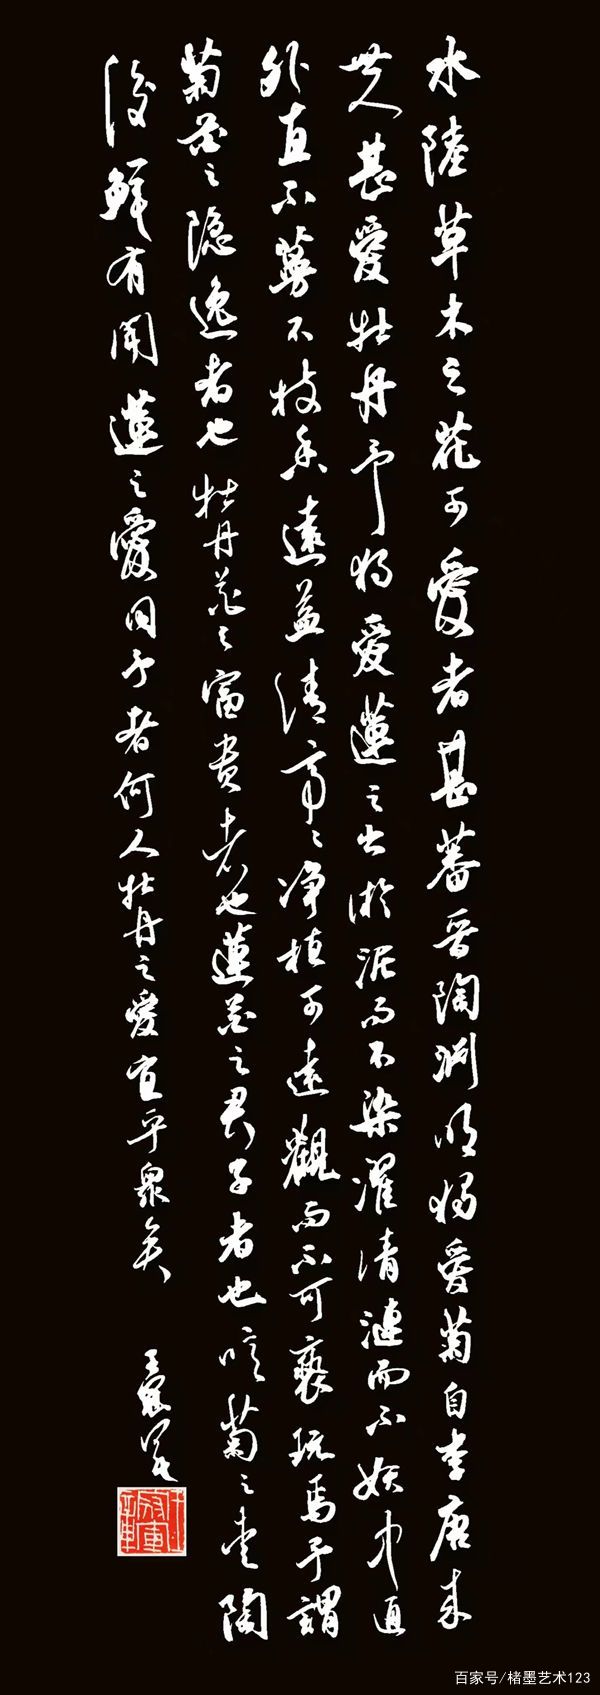 水陸草木之花可愛者甚蕃晋陶渊明独愛菊自李唐来
世人甚愛牡丹予独愛蓮之出淤泥而不染濯清漣而不妖中通
外直不蔓不枝香遠益清亭々净植可遠觀而不可褻玩焉予謂
菊花之隐逸者也牡丹花之富貴者也蓮花之君子者也噫菊之愛陶
後鮮有聞蓮之愛同予者何人牡丹之愛宜乎衆矣
百家号/楮墨艺术123